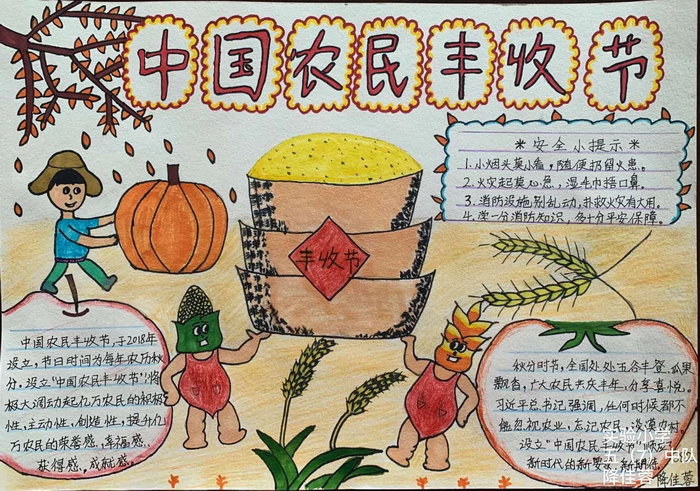 中国农民丰收节
*安全小提示*
1.小烟头莫小看,随便扔留火患。
2.火灾起莫心急,湿毛巾捂口鼻。
3.消防设施,别乱动,扑救火灾有大用。
4.学一分消防知识,多十分平安保障。
丰收节
中国农民丰收节,于2018年
设立,节日时间为每年农历秋
分,设立"中国农民丰收节",将
极大调动起亿万农民的积极
性、主动性、创造性,提升亿
万农民的荣誉感、幸福感、
获得感、成就感。
秋分时节,全国处处五谷丰登、瓜果
飘香,广大农民共庆丰年,分享喜悦。
习近平总书记强调,任何时候都不
能忽视农业、忘记农民、淡漠农村。
设立"中国农民丰收节"
新时代的新要求、新期待
实验小学
中队
降佳蓉
降佳蓉